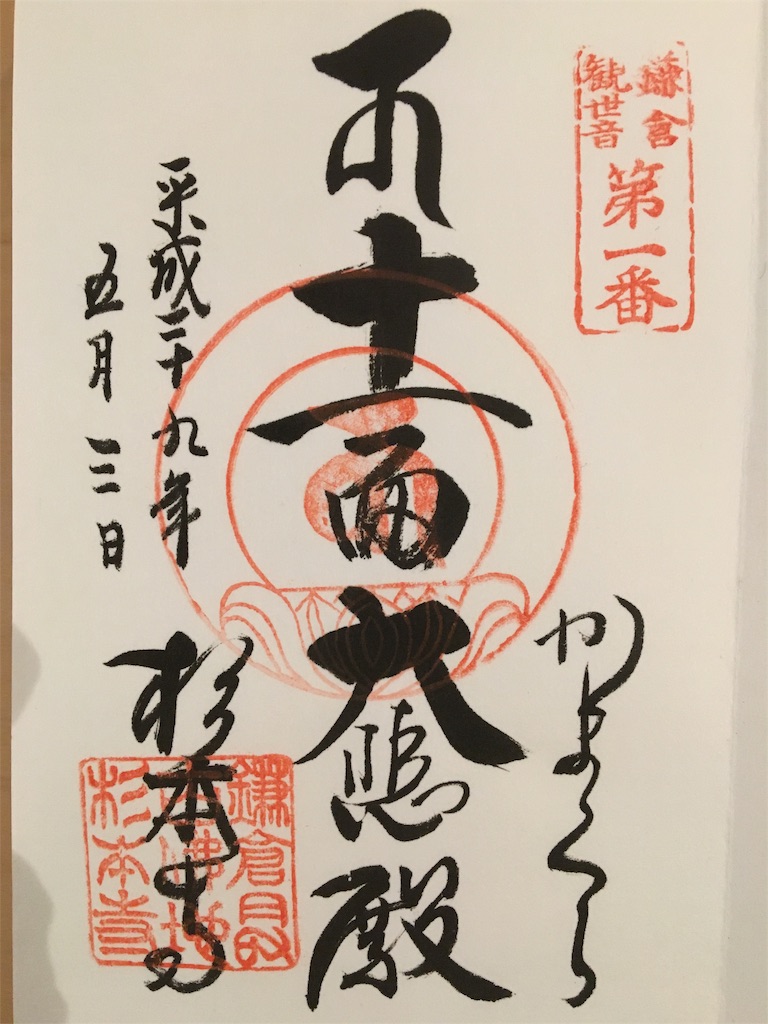 鎌倉
観世音
第一番
かまくら
十一面大悲殿
平成二十九年
五月三日
杉本寺
鎌倉最
古佛地
杉本寺